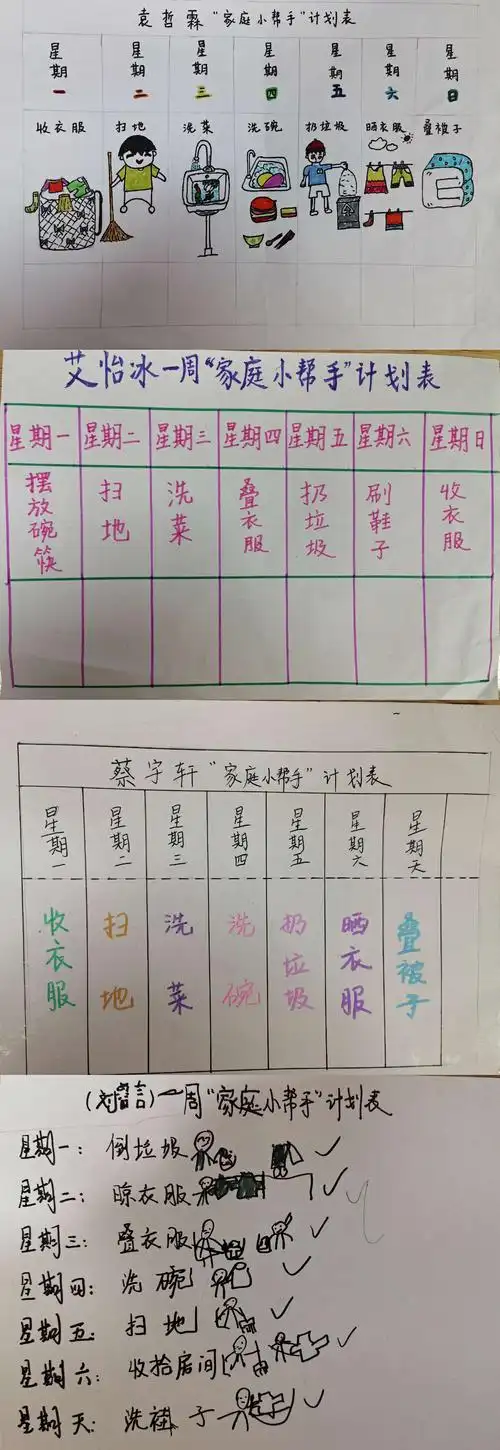 袁哲霖"家庭小帮手"计划表
星期一 星期二 星期三 星期四 星期五 星期六 星期日
收衣服 扫地 洗菜 洗碗 扔垃圾 晒衣服 叠被子
艾怡冰一周"家庭小帮手"计划表
星期一 星期二 星期三 星期四 星期五 星期六 星期日
摆放碗筷 扫地 洗菜 叠衣服 扔垃圾 刷鞋子 收衣服
蔡宇轩"家庭小帮手"计划表
星期一 星期二 星期三 星期四 星期五 星期六 星期天
收衣服 扫地 洗菜 洗碗 扔垃圾 晒衣服 叠被子
(刘言)一周"家庭小帮手"计划表
星期一：倒垃圾
星期二：晾衣服
星期三：叠衣服
星期四：洗碗
星期五：扫地
星期六：收拾房间
星期天：洗袜子